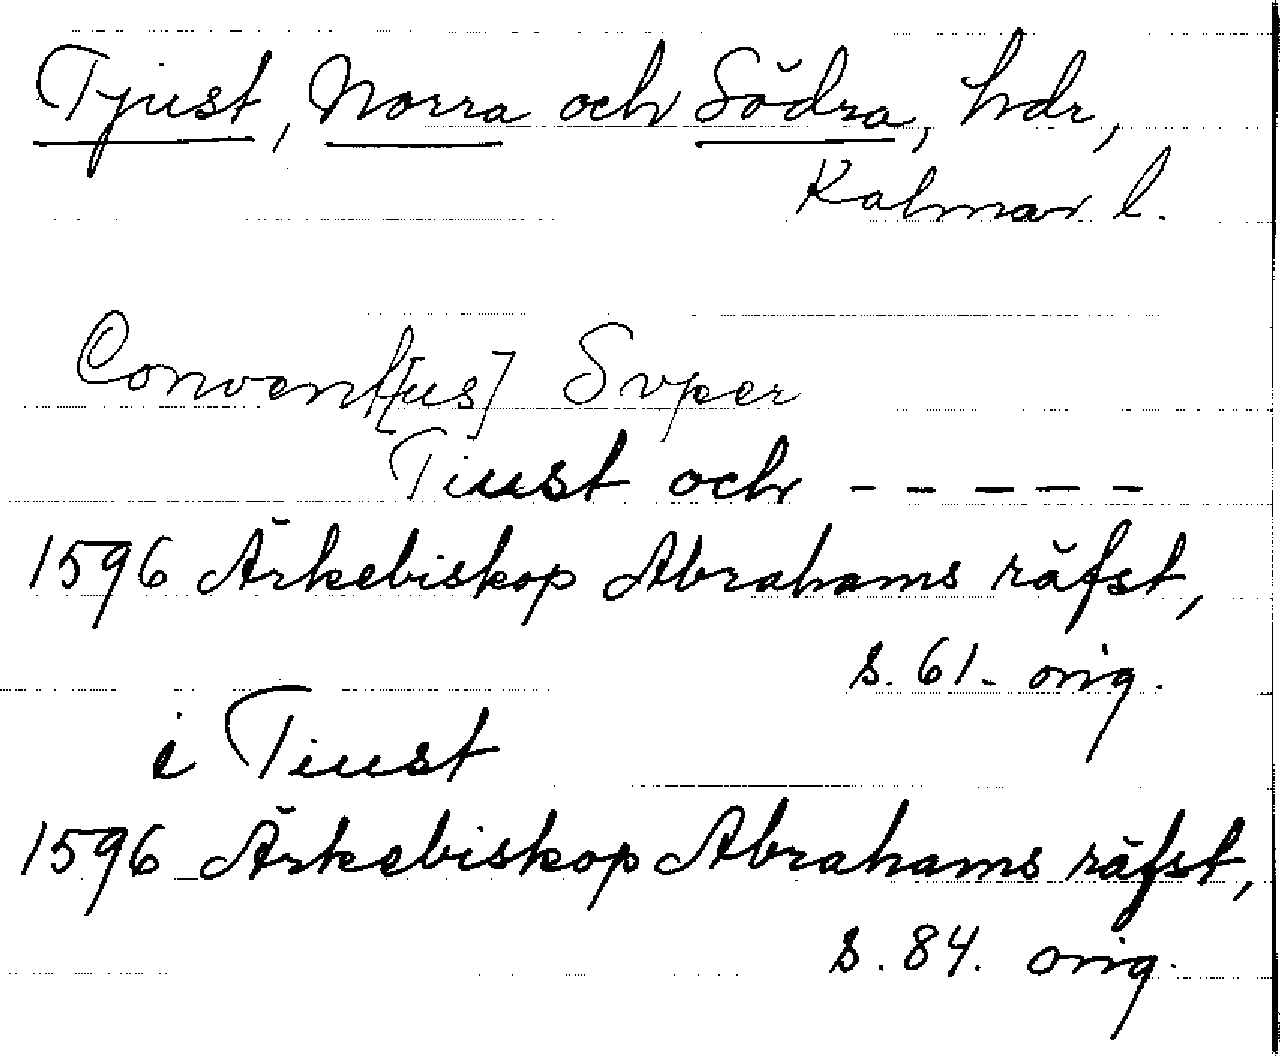 Tjust, Norra och Södra, hdr,
Kalmar l.
Convent[us] Svper
Tiust och - - - - -
1596 Ärkebiskop Abrahams räfst,
s. 61. orig.
i Tiust
1596 Ärkebiskop Abrahams räfst,
s. 84. orig.